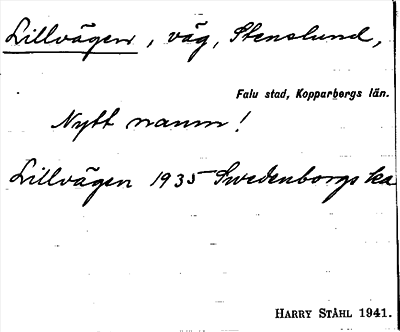 Lillvägen, väg, Stenslund,
Falu stad, Kopparbergs län.
Nytt namn!
Lillvägen 1935 Swedenborgs ka
HARRY STÅHL 1941.